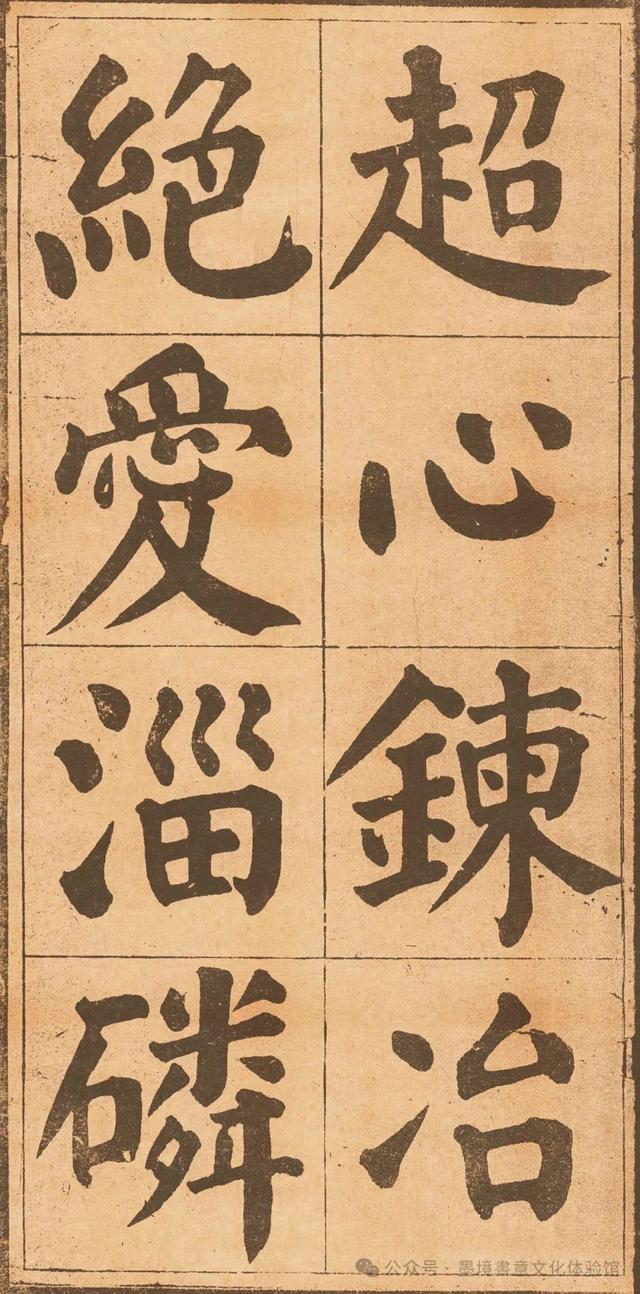 超心鍊冶
絕愛淄磷
公众号 · 墨境書意文化体验馆